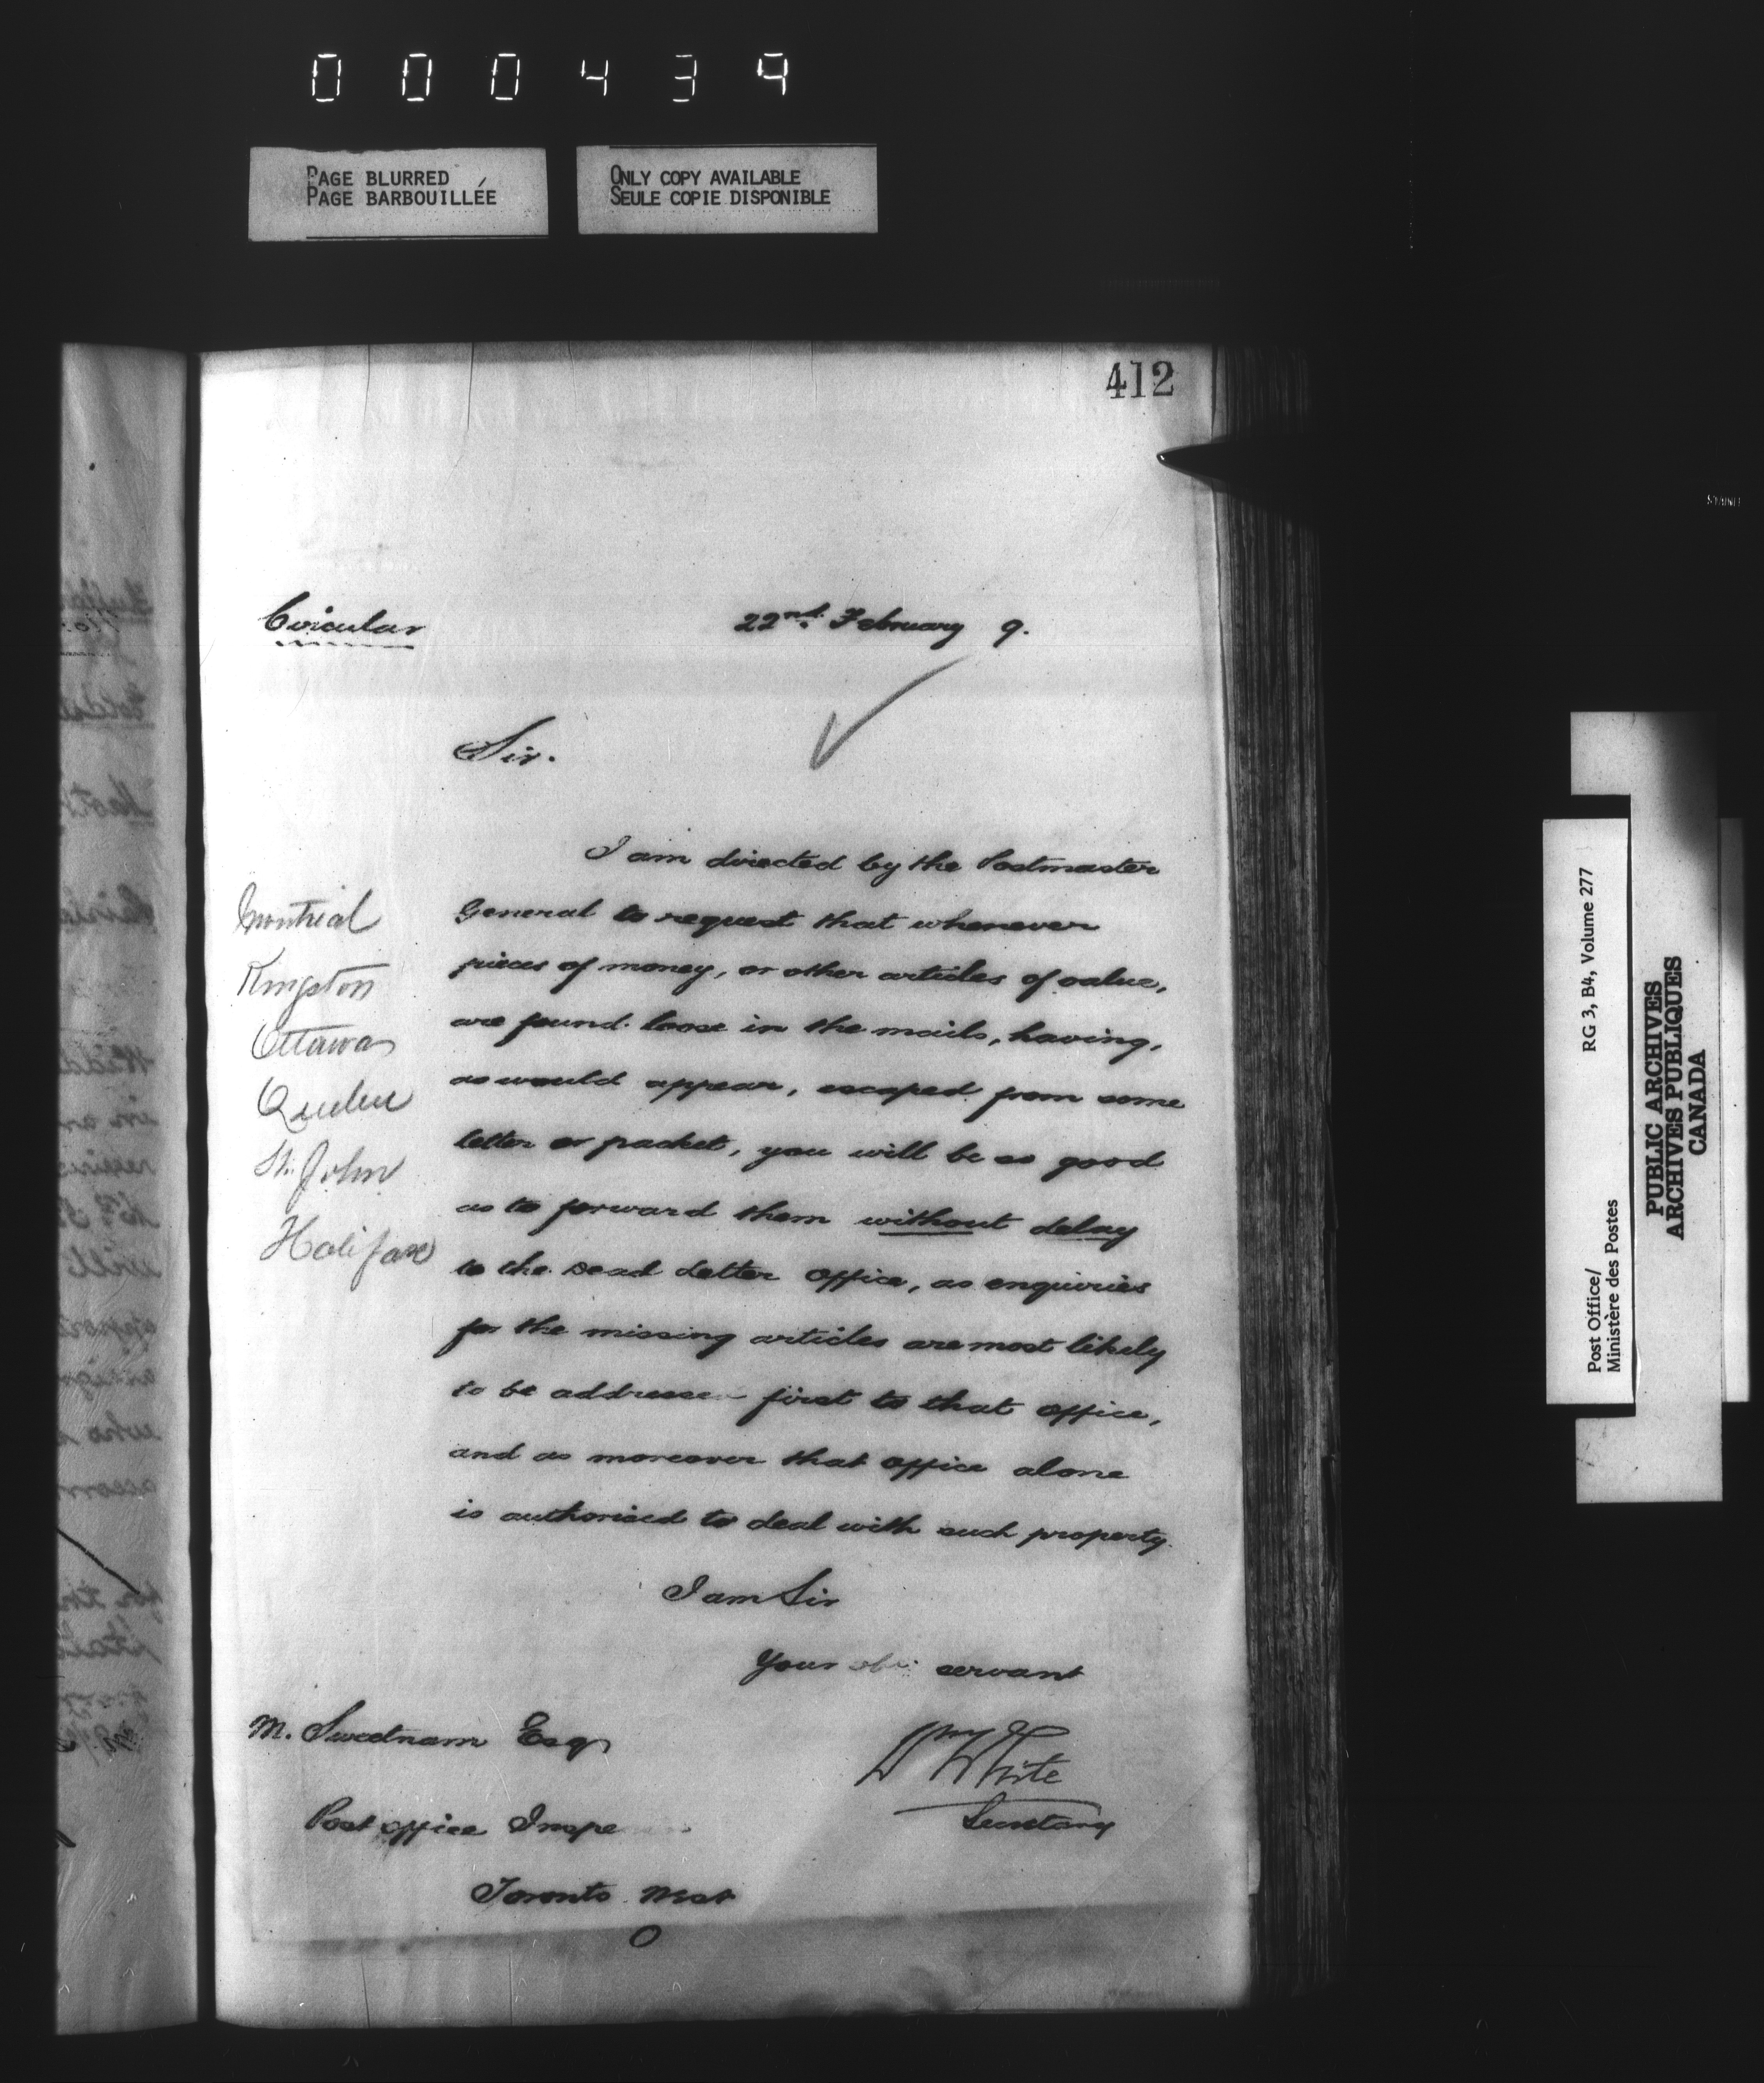 000439
PAGE BLURRED
PAGE BARBOUILLÉE
ONLY COPY AVAILABLE
SEULE COPIE DISPONIBLE
412
Circular
22nd. February 9.
Sir.
I am directed by the Postmaster
General to request that whenever
pieces of money, or other articles of value,
are found loose in the mails, having,
as would appear, escaped from some
letter or packet, you will be so good
as to forward them without delay
to the Dead Letter Office, as enquiries
for the missing articles are most likely
to be addresse first to that office,
and as moreover that office alone
is authorised to deal with such property.
I am Sir
Your servant
Montreal
Kingston
Ottawa
Quebec
St. John
Halifax
M. Sweetnam Esq
Post office Inspe
Toronto
White
Secretary
RG 3, B4, Volume 277
Post Office/
Ministère des Postes
PUBLIC ARCHIVES
ARCHIVES PUBLIQUES
CANADA